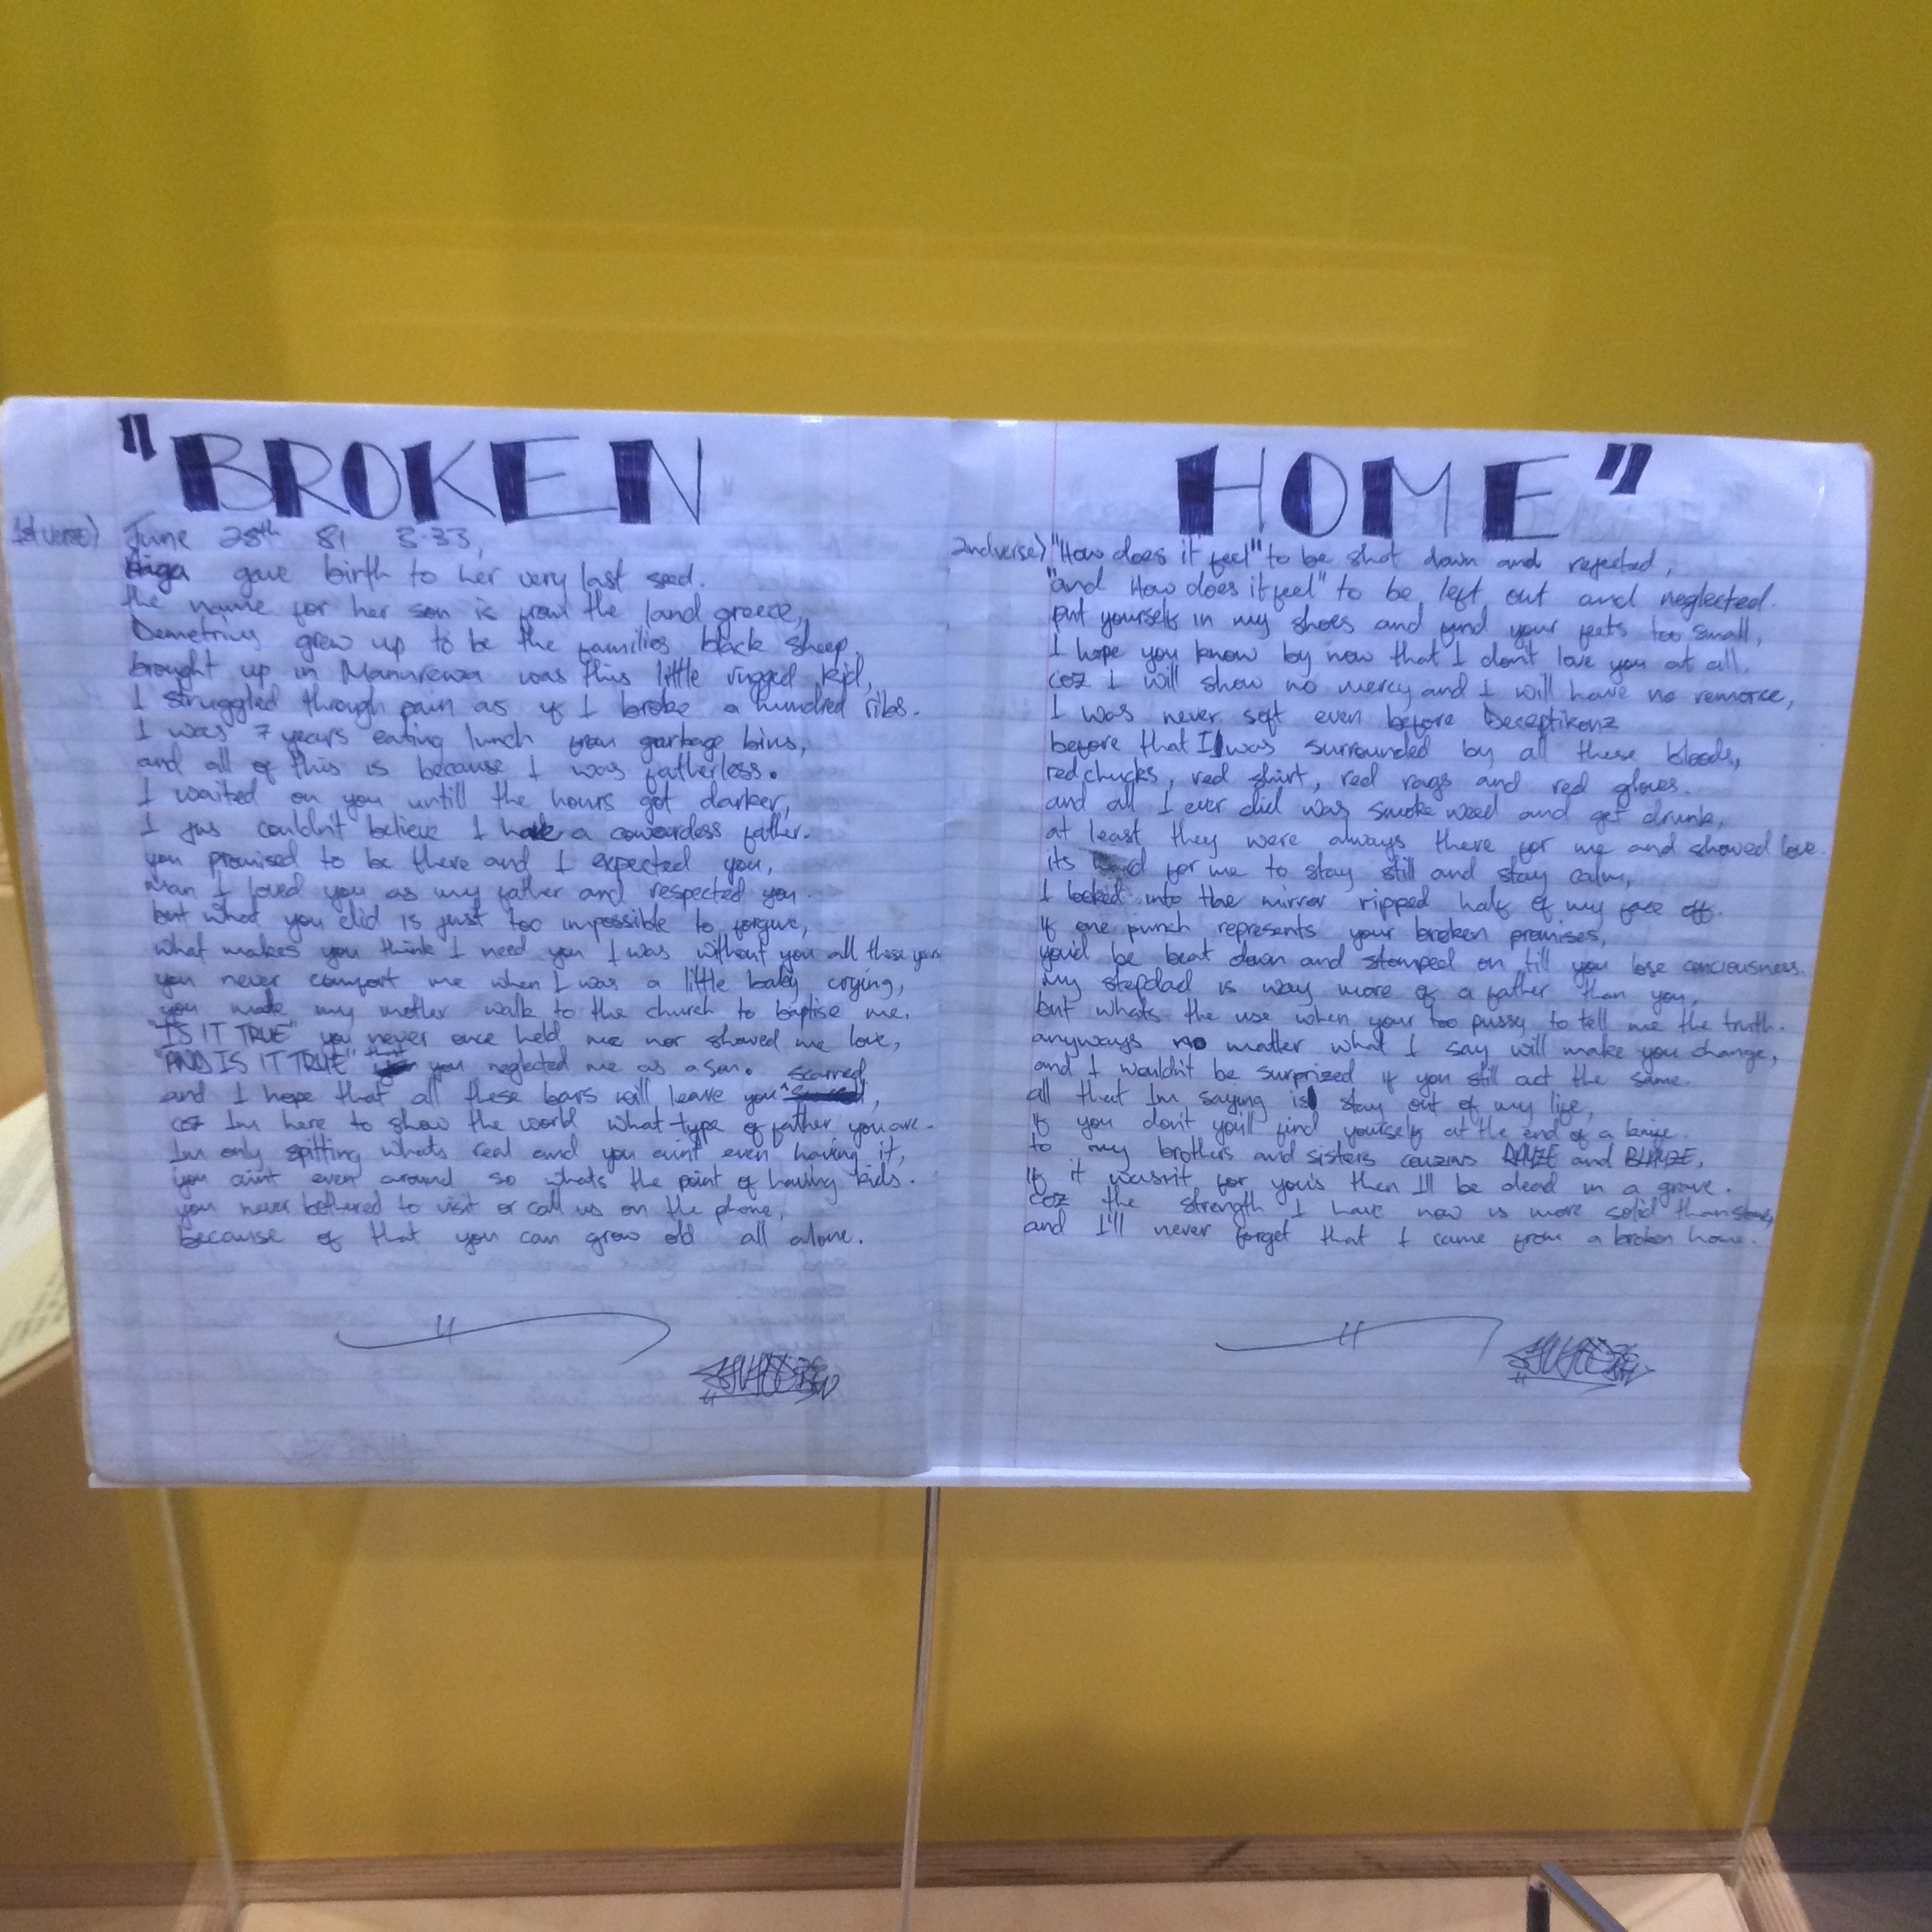 "BROKEN HOME"
1st verse) June 28th 81 3:33,
gave birth to her very last seed.
the name for her son is from the land greece,
Demetrius grew up to be the families black sheep.
brought up in Manurewa was this little rugged kid,
I struggled through pain as if I broke a hundred ribs.
I was 7 years eating lunch from garbage bins,
and all of this is because I was fatherless.
I waited on you untill the hours got darker,
I jus couldn't believe I have a cowardess father.
you promised to be there and I expected you,
man I loved you as my father and respected you.
but what you did is just too impossible to forgive,
what makes you think I need you I was without you all these years
you never comfort me when I was a little baby crying,
you made my mother walk to the church to baptise me.
"IS IT TRUE" you never once held me nor showed me love,
"AND IS IT TRUE" that you neglected me as a son.
and I hope that all these bars will leave you scarred,
coz Im here to show the world what type of father you are.
Im only spitting whats real and you aint even having it,
you aint even around so whats the point of having kids.
you never bothered to visit or call us on the phone,
because of that you can grow old all alone.
2nd verse) "How does it feel" to be shot down and rejected,
"and How does it feel" to be left out and neglected.
put yourself in my shoes and find your feets too small,
I hope you know by now that I don't love you at all.
coz I will show no mercy and I will have no remorce,
I was never soft even before Deceptikonz
before that I was surrounded by all these bloods,
red chucks, red shirt, red rags and red gloves.
and all I ever did was smoke weed and get drunk,
at least they were always there for me and showed love.
its hard for me to stay still and stay calm,
I looked into the mirror ripped half of my face off.
If one punch represents your broken promises,
you'd be beat down and stomped on till you lose conciousness.
my stepdad is way more of a father than you,
but whats the use when your too pussy to tell me the truth.
anyways no matter what I say will make you change,
and I wouldn't be surprized if you still act the same.
all that Im saying is stay out of my life,
If you don't you'll find yourself at the end of a knife.
to my brothers and sisters couzins DAYZE and BLAYZE,
If it wasn't for yous then I'll be dead in a grave.
coz the strength I have now is more solid than stone,
and I'll never forget that I came from a broken home.